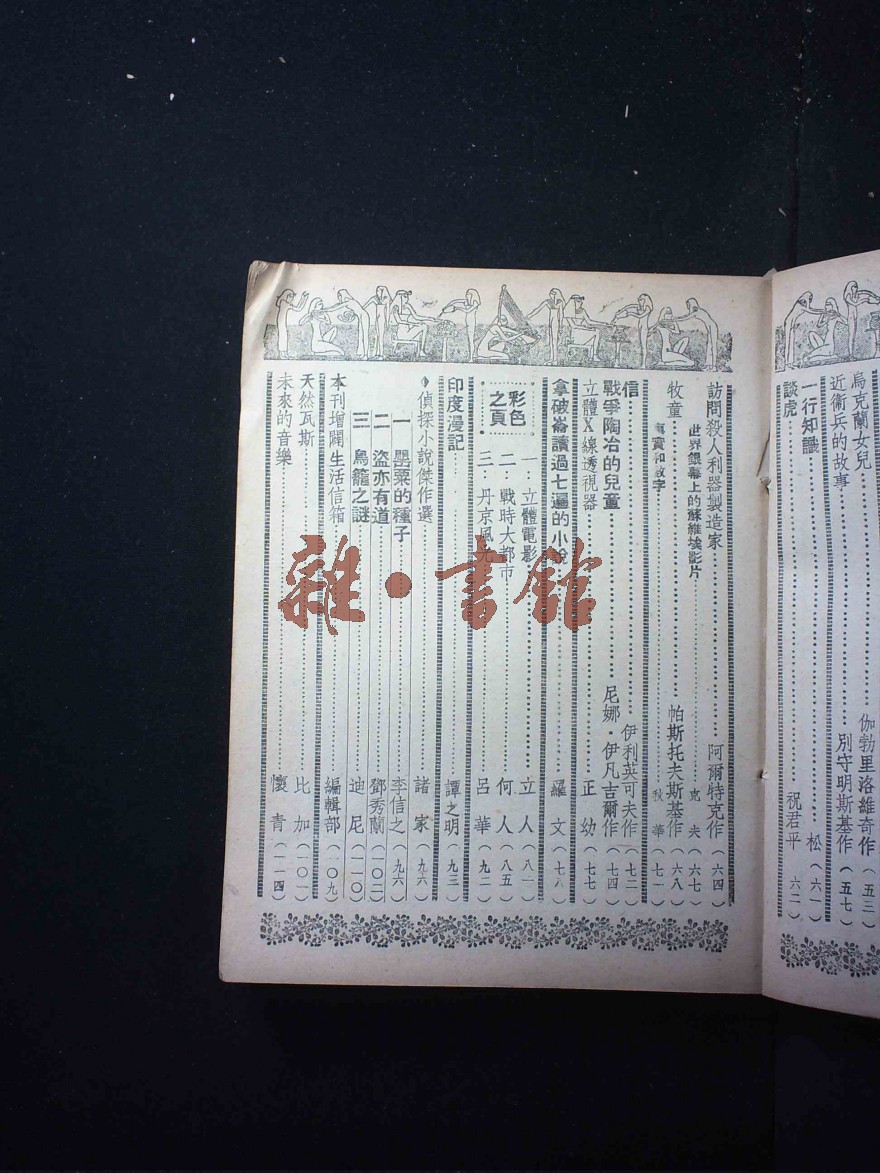 烏克蘭女兒 伽勃里洛維奇作(五三)
近衛兵的故事 別守明斯基作(五七)
一行知識 松(六一)
談虎 祝君平 六二)
訪問殺人利器製造家 阿爾特克作(六四)
世界銀幕上的蘇維埃影片 克夫(六七)
牧童 帕斯托夫斯基作(六八)
事實和數字 秋華(七一)
信 伊利英可夫作(七二)
戰爭陶冶的兒童 尼娜·伊凡吉爾作(七四)
立體X線透視器 正幼(七七)
拿破崙讀過七遍的小說 羅文(七八)
彩色之頁
一:立體電影 立人(八一)
二:戰時大都市 何人(八五)
三:丹京風光 呂華(九二)
印度漫記 譚之明(九三)
偵探小說傑作選 諸家(九六)
一 罌粟的種子 李信之(九六)
二 盜亦有道 鄧秀蘭(一〇二)
三 鳥籠之謎 迪尼(一一〇)
本刊增闢生活信箱 編輯部(一〇九)
天然瓦斯 比加(一〇一)
未來的音樂 懷青(一一四)
雜·書館